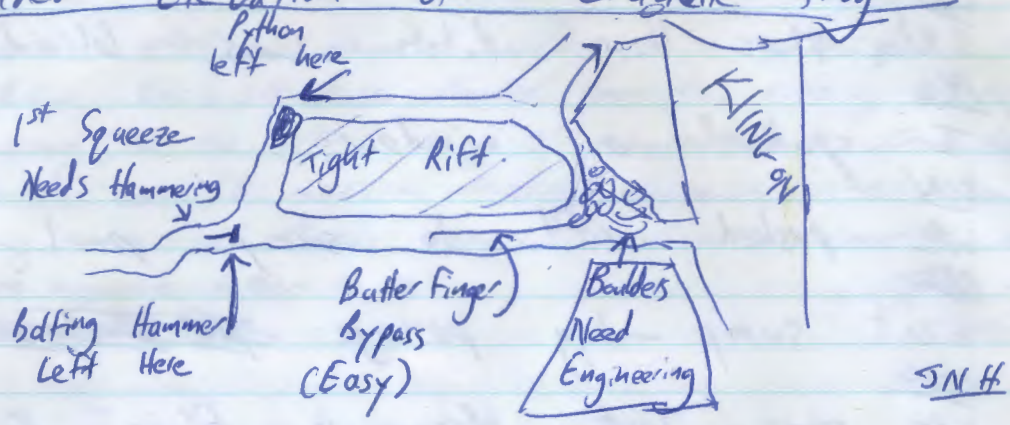 Python
left here
1st Squeeze
Needs Hammering
Tight Rift
KING ON
Bolting Hammer
Left Here
Butter Finger
Bypass
(Easy)
Boulders
Need
Engineering
JNH